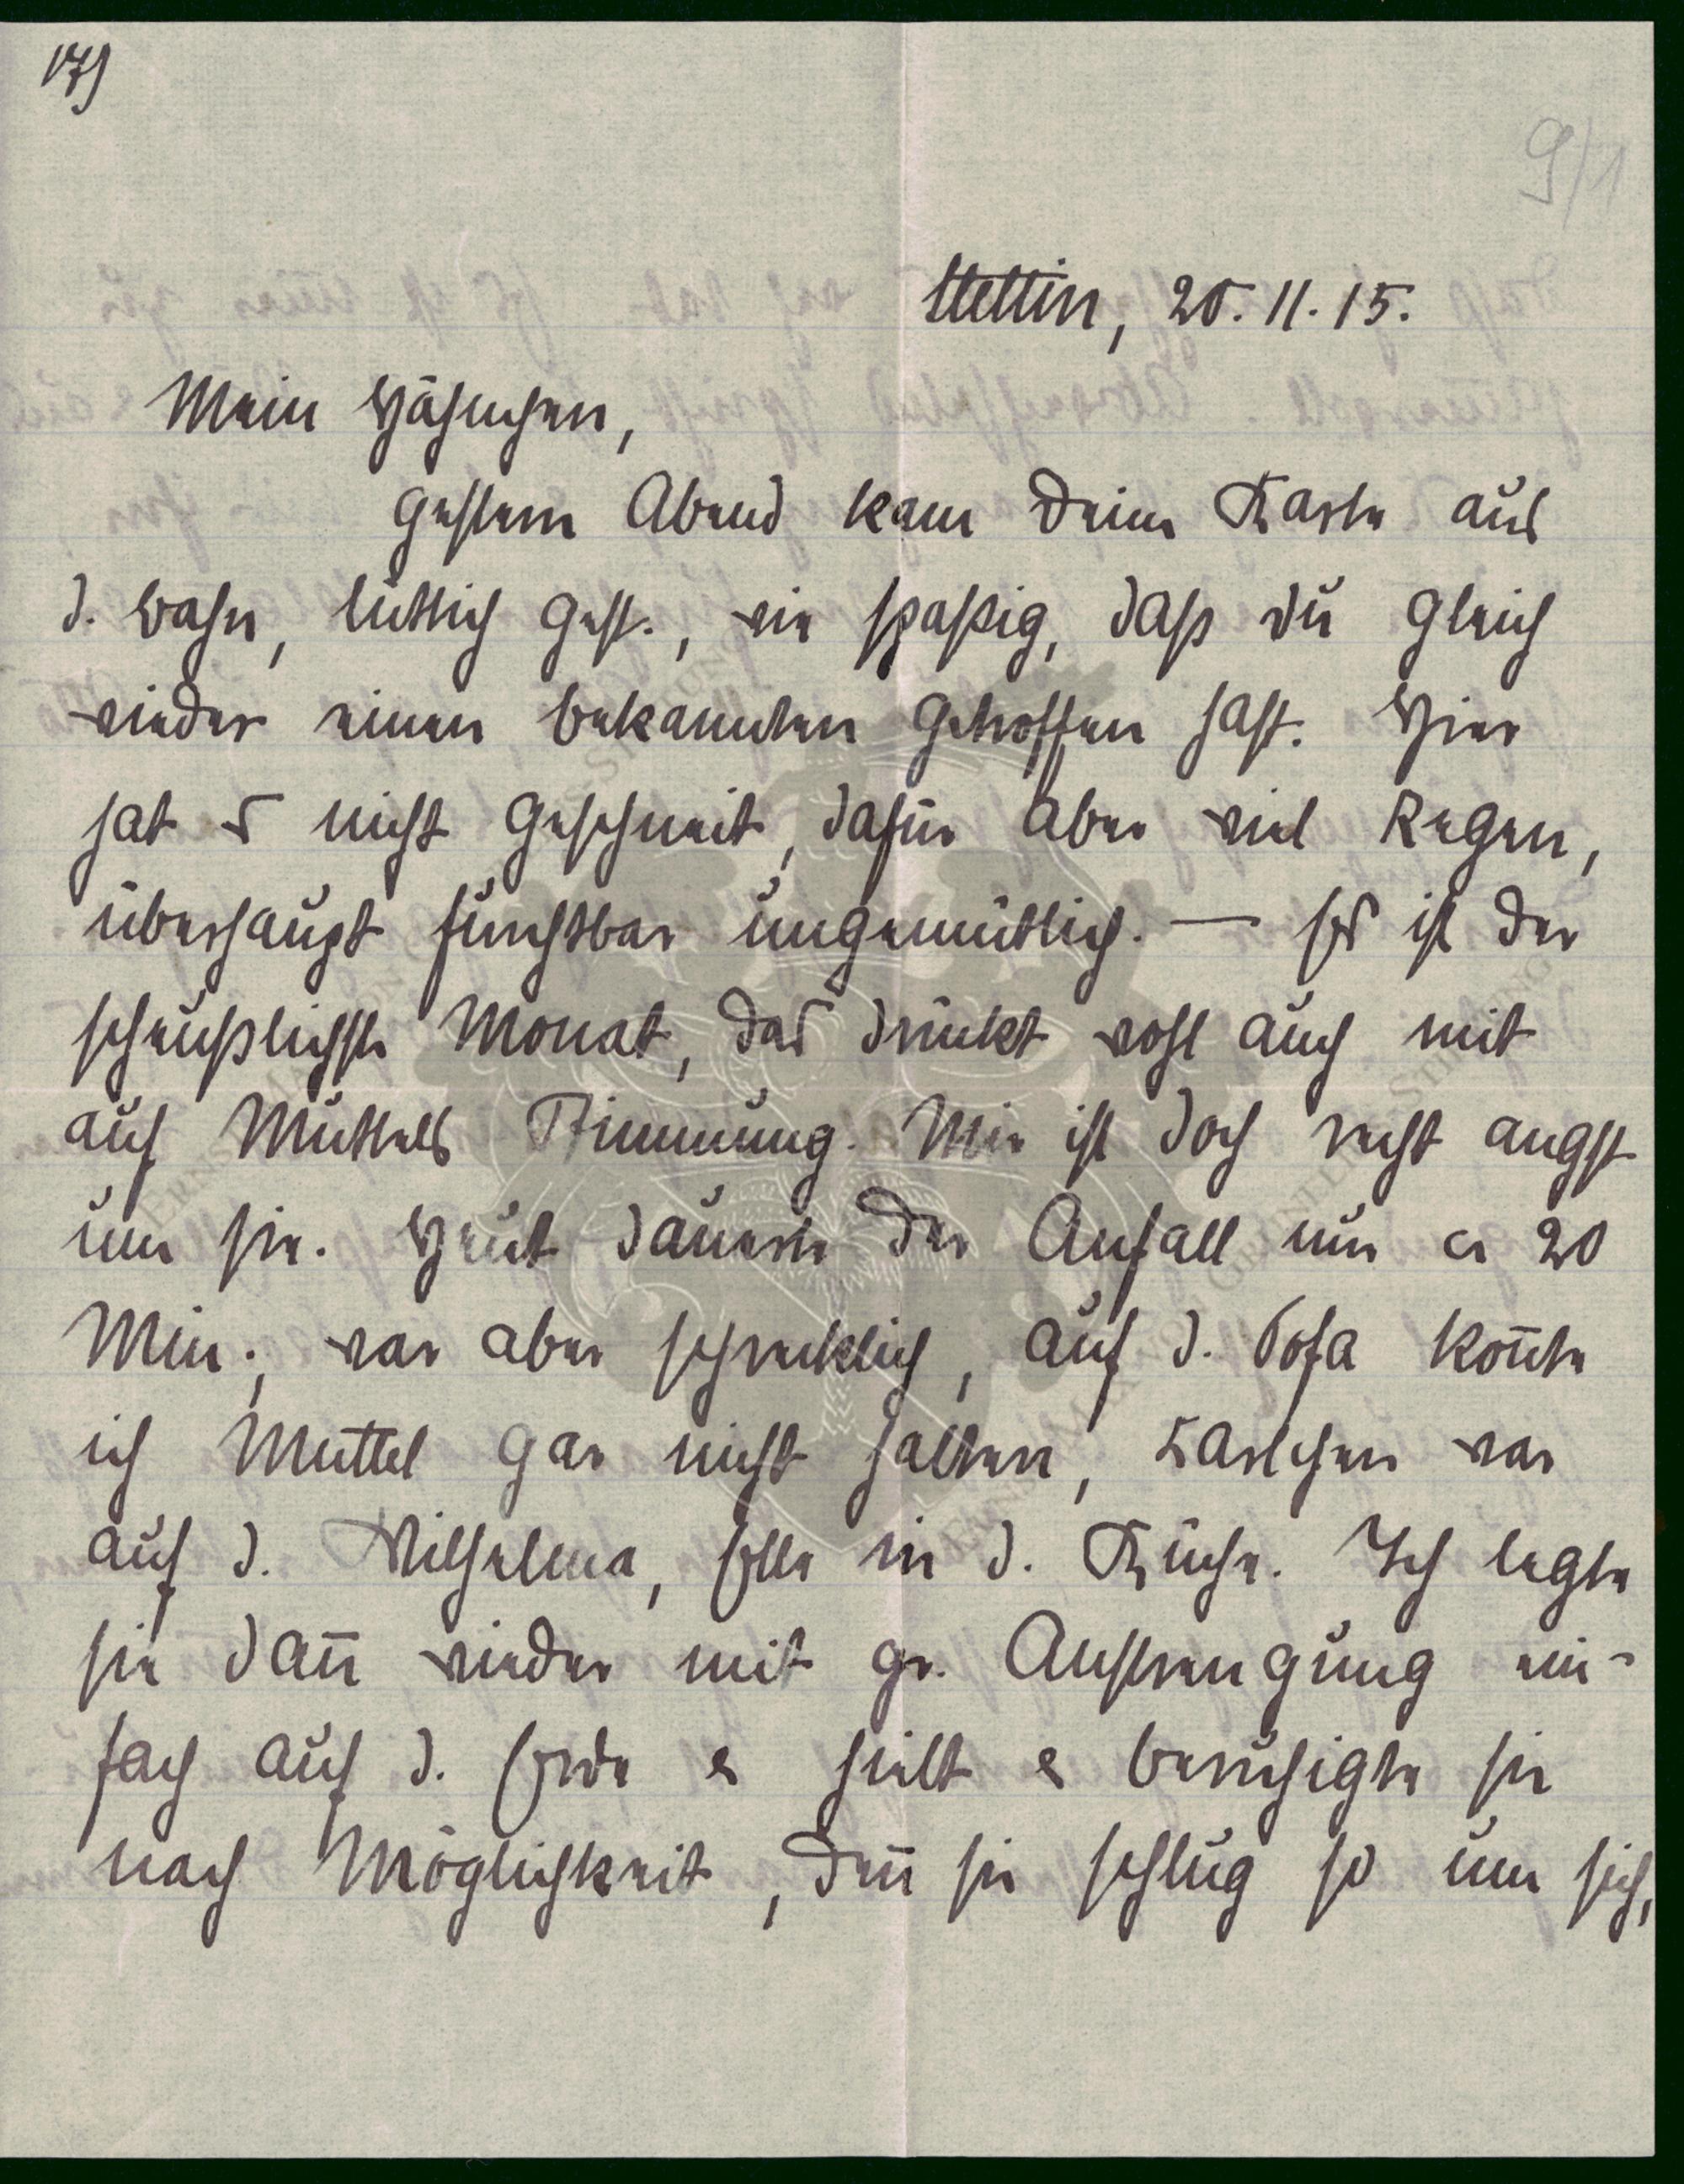 179
9/1
Stettin, 20.11.15.
Mein Hähnchen,
gestern Abend kam Deine Karte aus
d. Bahn, Lüttich gest., wie spaßig, daß Du gleich
wieder einen Bekannten getroffen hast. Hier
hat es nicht geschneit, dafür aber viel Regen,
überhaupt furchtbar ungemütlich. — Es ist der
scheußlichste Monat, das drückt wohl auch mit
auf Muttels Stimmung. Mir ist doch recht angst
um sie. Heut dauerte der Anfall nur ca 20
Min., war aber schrecklich, auf d. Sofa kon̄te
ich Muttel gar nicht halten, Karlchen war
auf d. Wilhelma, Elle in d. Küche. Ich legte
sie dan̄ wieder mit gr. Anstrengung ein-
fach auf d. Erde & hielt & beruhigte sie
nach Möglichkeit, den̄ sie schlug so um sich,